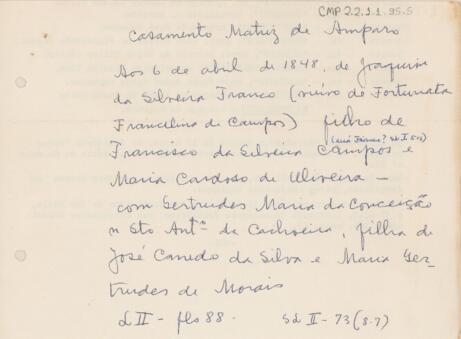 CMP 2.2.1.1.95.5
Casamento Matriz de Amparo
Aos 6 de abril de 1848, de Joaquim
da Silveira Franco (viúvo de Fortunata
Francelina de Campos) filho de
(será Franco? SL I 503)
Francisco da Silveira Campos e
Maria Cardoso de Oliveira —
com Gertrudes Maria da Conceição
n Sto Antº da Cachoeira, filha de
José Canedo da Silva e Maria Ger-
trudes de Morais
L II - fls 88. SL II - 73 (8-7)